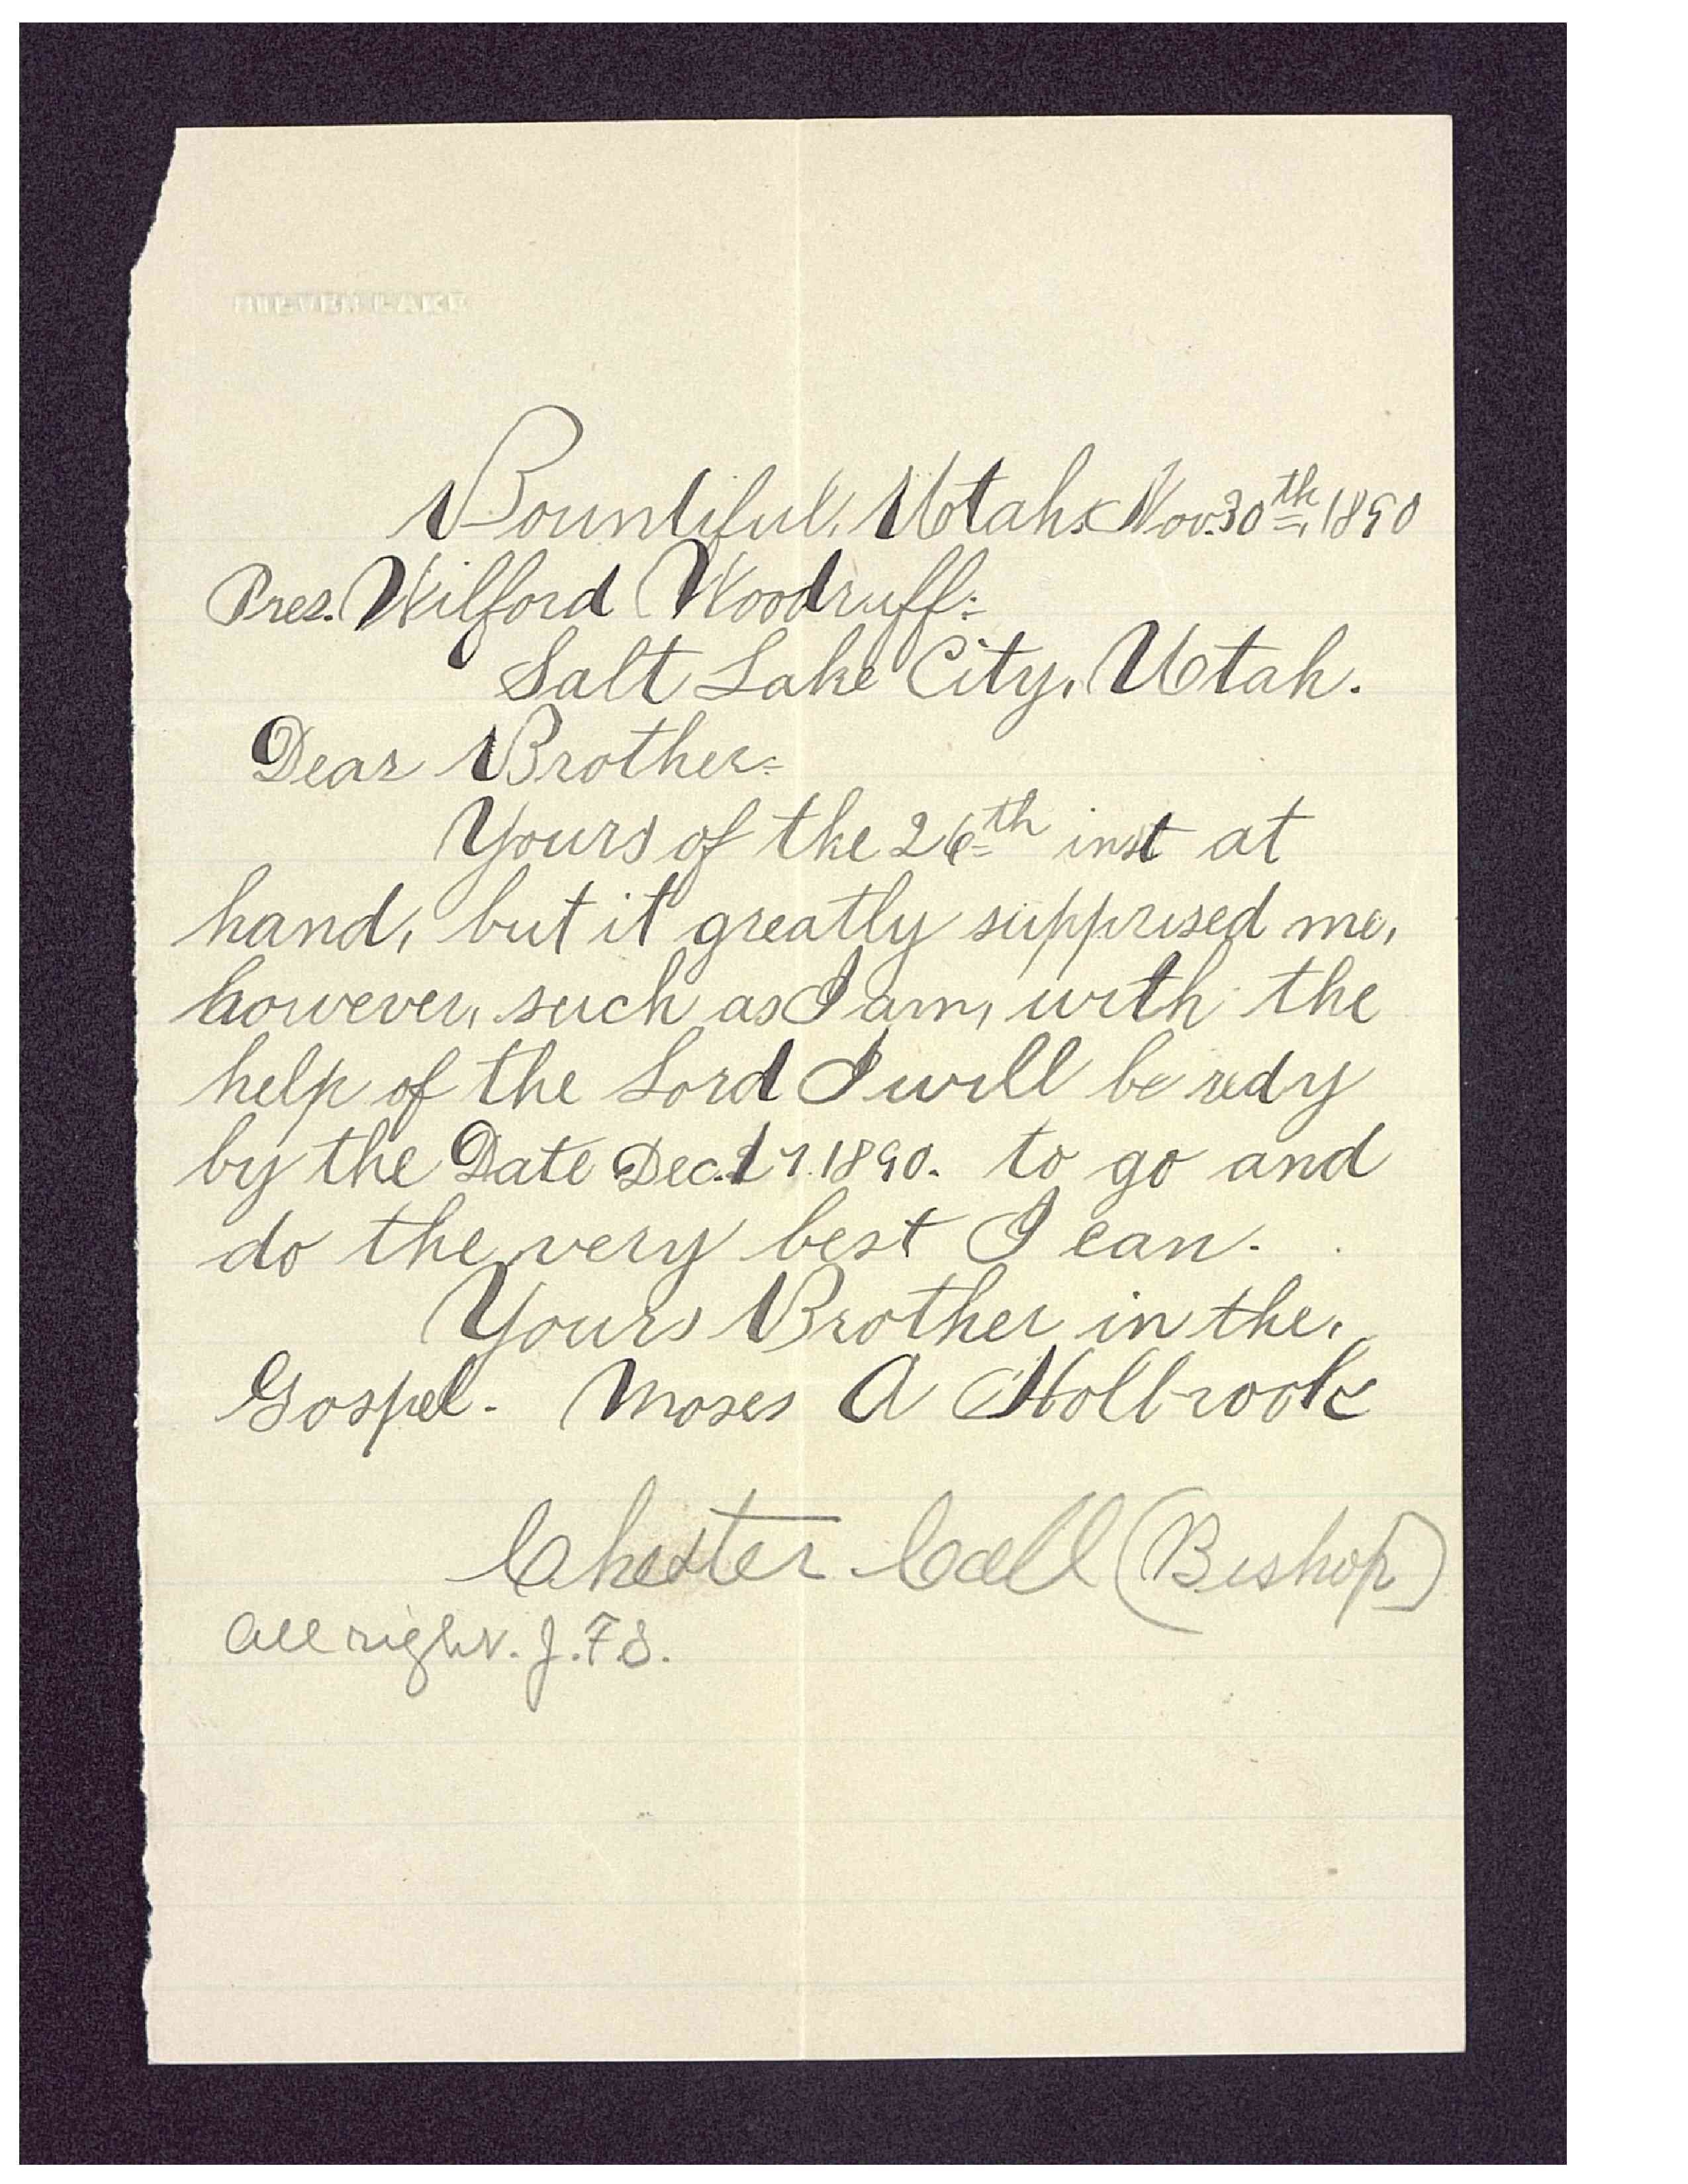 Bountiful, Utah. Nov. 30th, 1890
Pres. Wilford Woodruff:
Salt Lake City, Utah.
Dear Brother:
Yours of the 26th inst at
hand, but it greatly supprised me,
however, such as I am, with the
help of the Lord I will be redy
by the Date Dec. 1890. to go and
do the very best I can.
Yours Brother in the,
Gospel. Moses A Holbrook
Chester Call (Bishop)
All right. J.F.S.